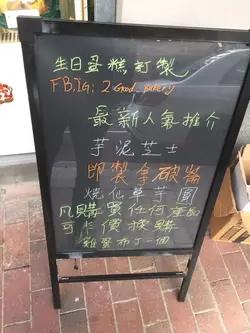 生日蛋糕訂製
FB,IG: 2 Good Bakery
最新人氣推介
芋泥芝士
即製拿破崙
燒仙草芋圓
凡購買任何產品
可半價換購
雞蛋布丁一個